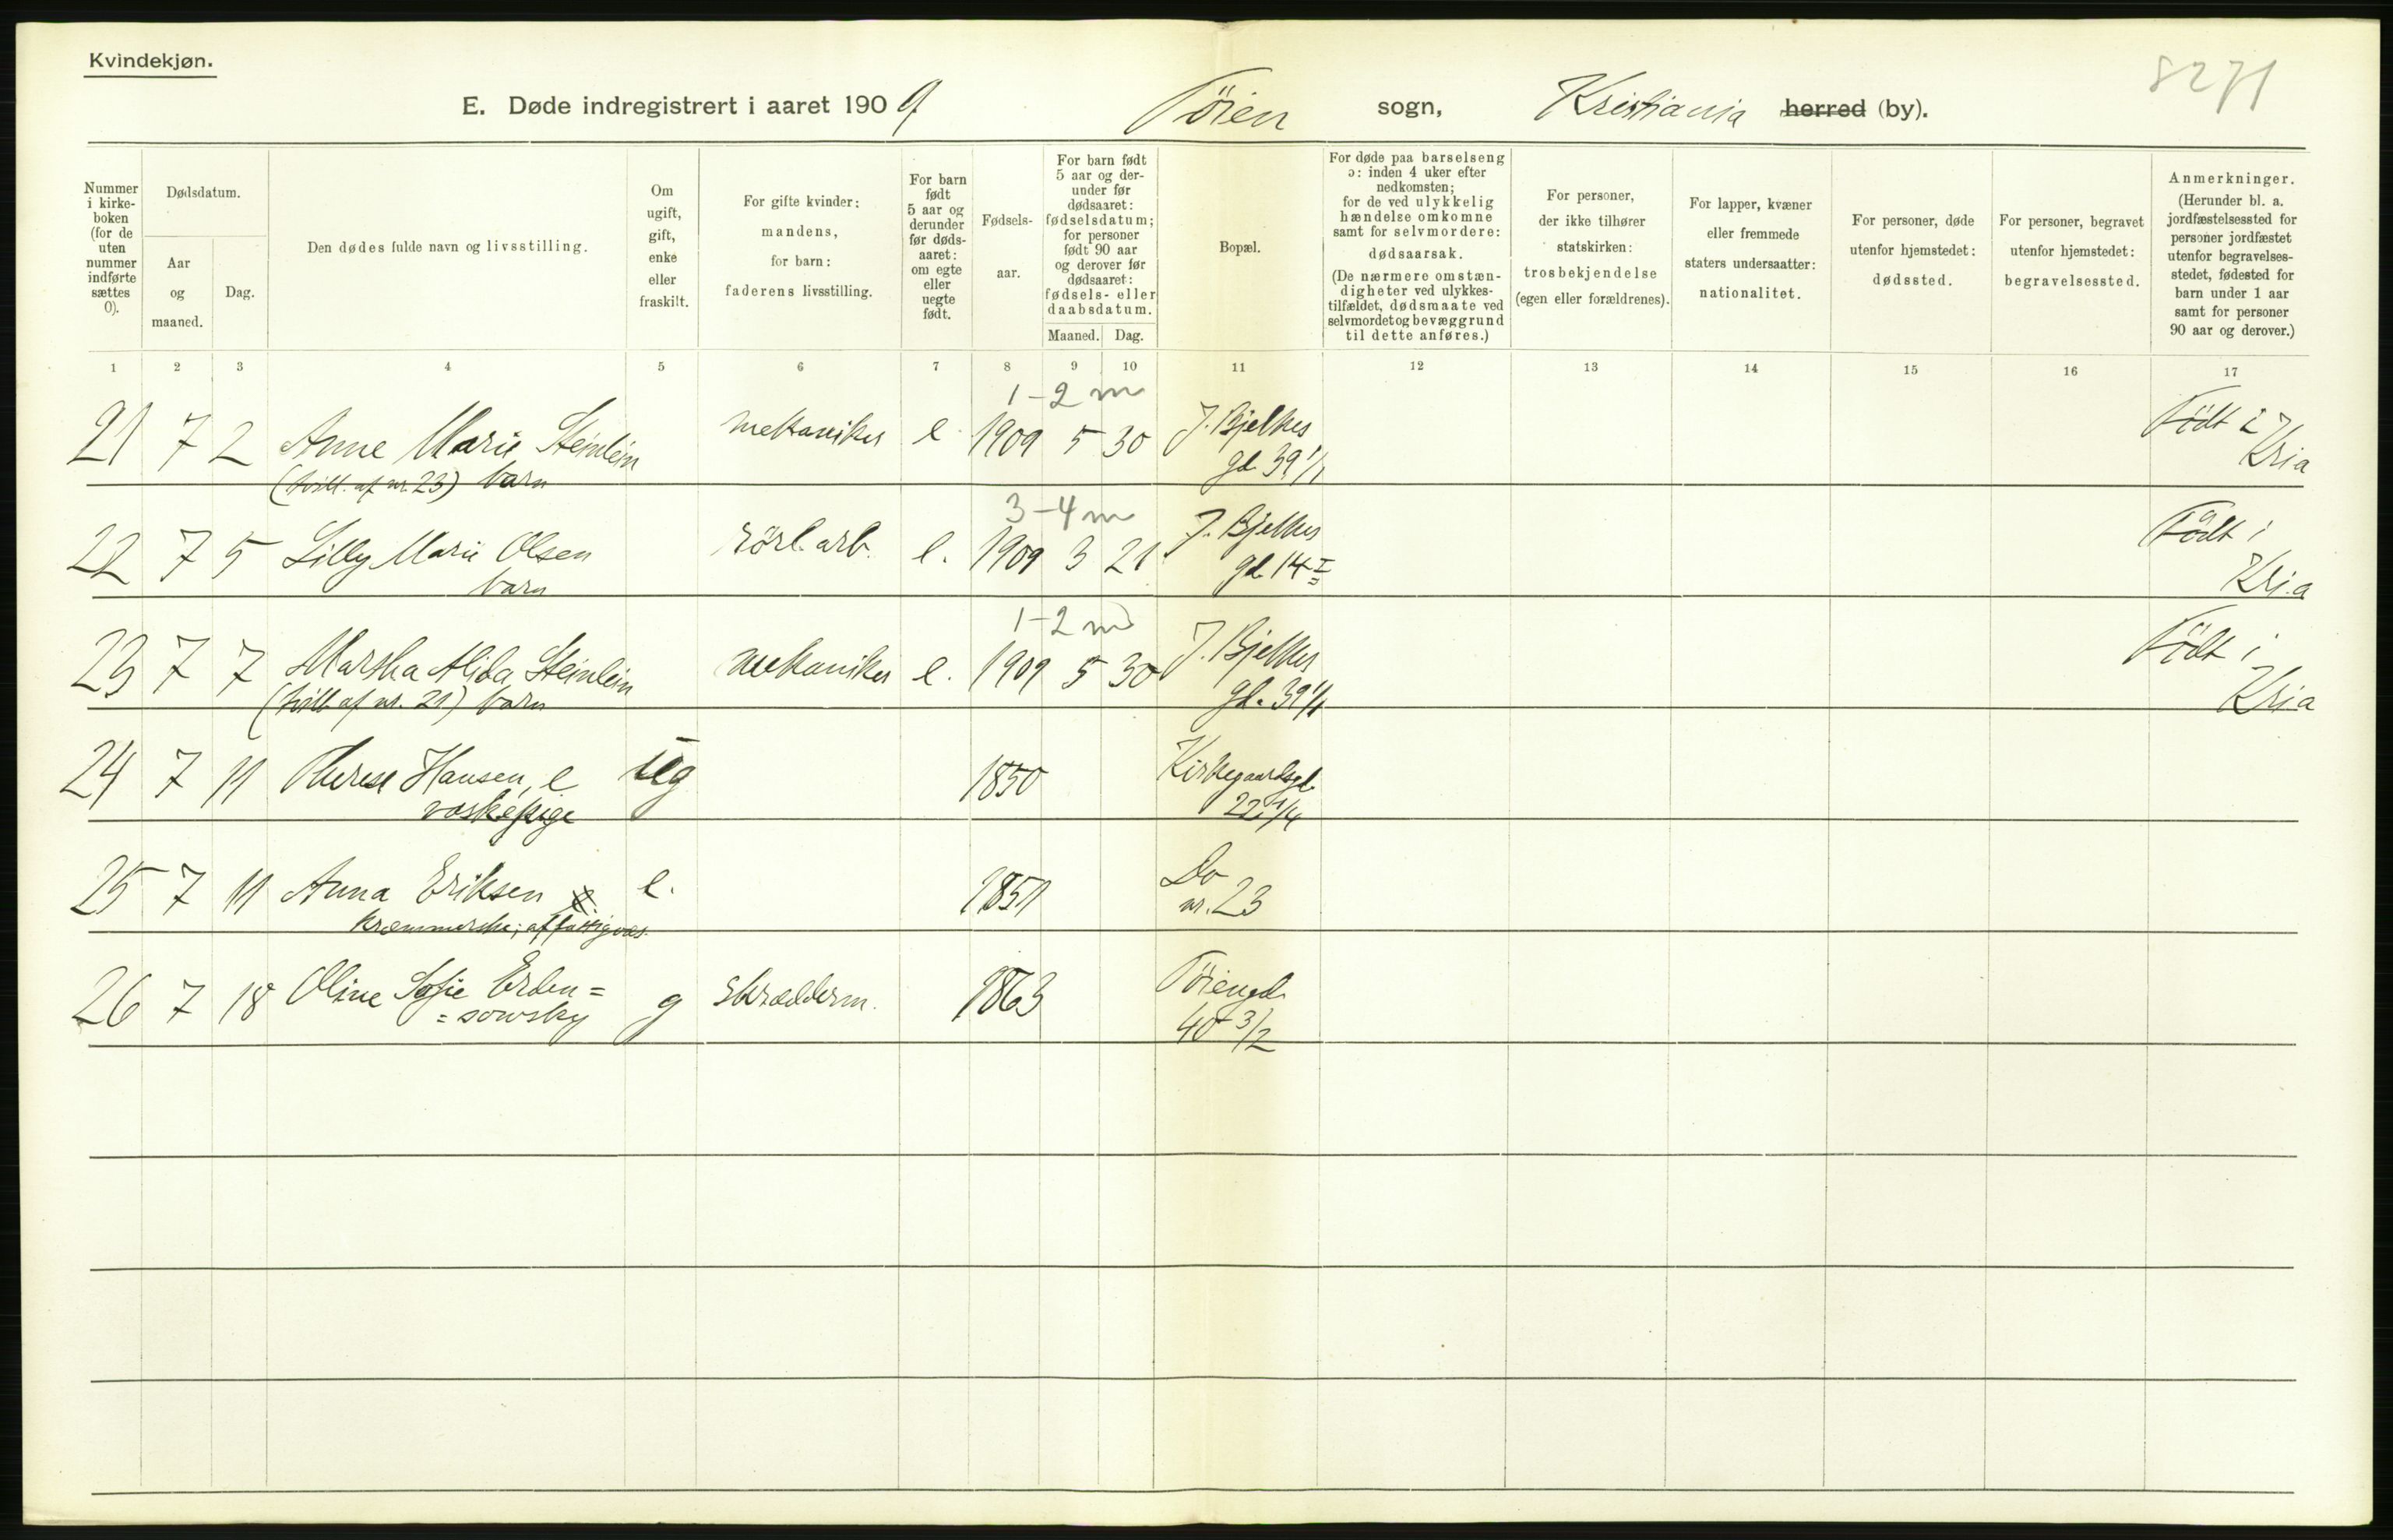 Kvindekjøn.
8271
E. Døde indregistrert i aaret 1909 Töien sogn, Kristiania herred (by).
Nummer i kirke-boken (for de uten nummer indførte sættes 0).
Dødsdatum.
Aar og maaned.
Dag.
Den dødes fulde navn og livsstilling.
Om ugift, gift, enke eller fraskilt.
For gifte kvinder: mandens, for barn: faderens livsstilling.
For barn født 5 aar og derunder før døds-aaret: om egte eller uegte født.
Fødsels-aar.
For barn født 5 aar og der-under før dødsaaret: fødselsdatum; for personer født 90 aar og derover før dødsaaret: fødsels- eller daabsdatum.
Maaned. Dag.
Bopæl.
For døde paa barselseng ɔ: inden 4 uker efter nedkomsten; for de ved ulykkelig hændelse omkomne samt for selvmordere: dødsaarsak. (De nærmere omstæn-digheter ved ulykkes-tilfældet, dødsmaate ved selvmordet og bevæggrund til dette anføres.)
For personer, der ikke tilhører statskirken: trosbekjendelse (egen eller forældrenes).
For lapper, kvæner eller fremmede staters undersaatter: nationalitet.
For personer, døde utenfor hjemstedet: dødssted.
For personer, begravet utenfor hjemstedet: begravelsessted.
Anmerkninger. (Herunder bl. a. jordfæstelsessted for personer jordfæstet utenfor begravelses-stedet, fødested for barn under 1 aar samt for personer 90 aar og derover.)
1 2 3 4 5 6 7 8 9 10 11 12 13 14 15 16 17
1-2 m
21 7 2 Anne Marie Steinlein mekaniker e 1909 5 30 J. Bjelkes Født i
(tvill. af nr. 23) barn gd. 39 1/1 Kria
3-4 m
22 7 5 Lilly Marie Olsen rörl. arb. e. 1909 3 21 J. Bjelkes Født i
barn gd. 14 I Kria
1-2 m
23 7 7 Martha Alida Steinlein mekaniker e. 1909 5 30 J. Bjelkes Født i
(tvill. af nr. 21) barn gd. 39 1/1 Kria
24 7 11 Therese Hansen, e ug 1850 Kirkegaardsgd.
vaskepige 22 1/4
25 7 11 Anna Eriksen e. 1851 Do
kræmmerske; af fattigvæs. nr. 23
26 7 18 Oline Sofie Erden= g skrædderm. 1863 Töiengd.
=sowsky 40 3/2